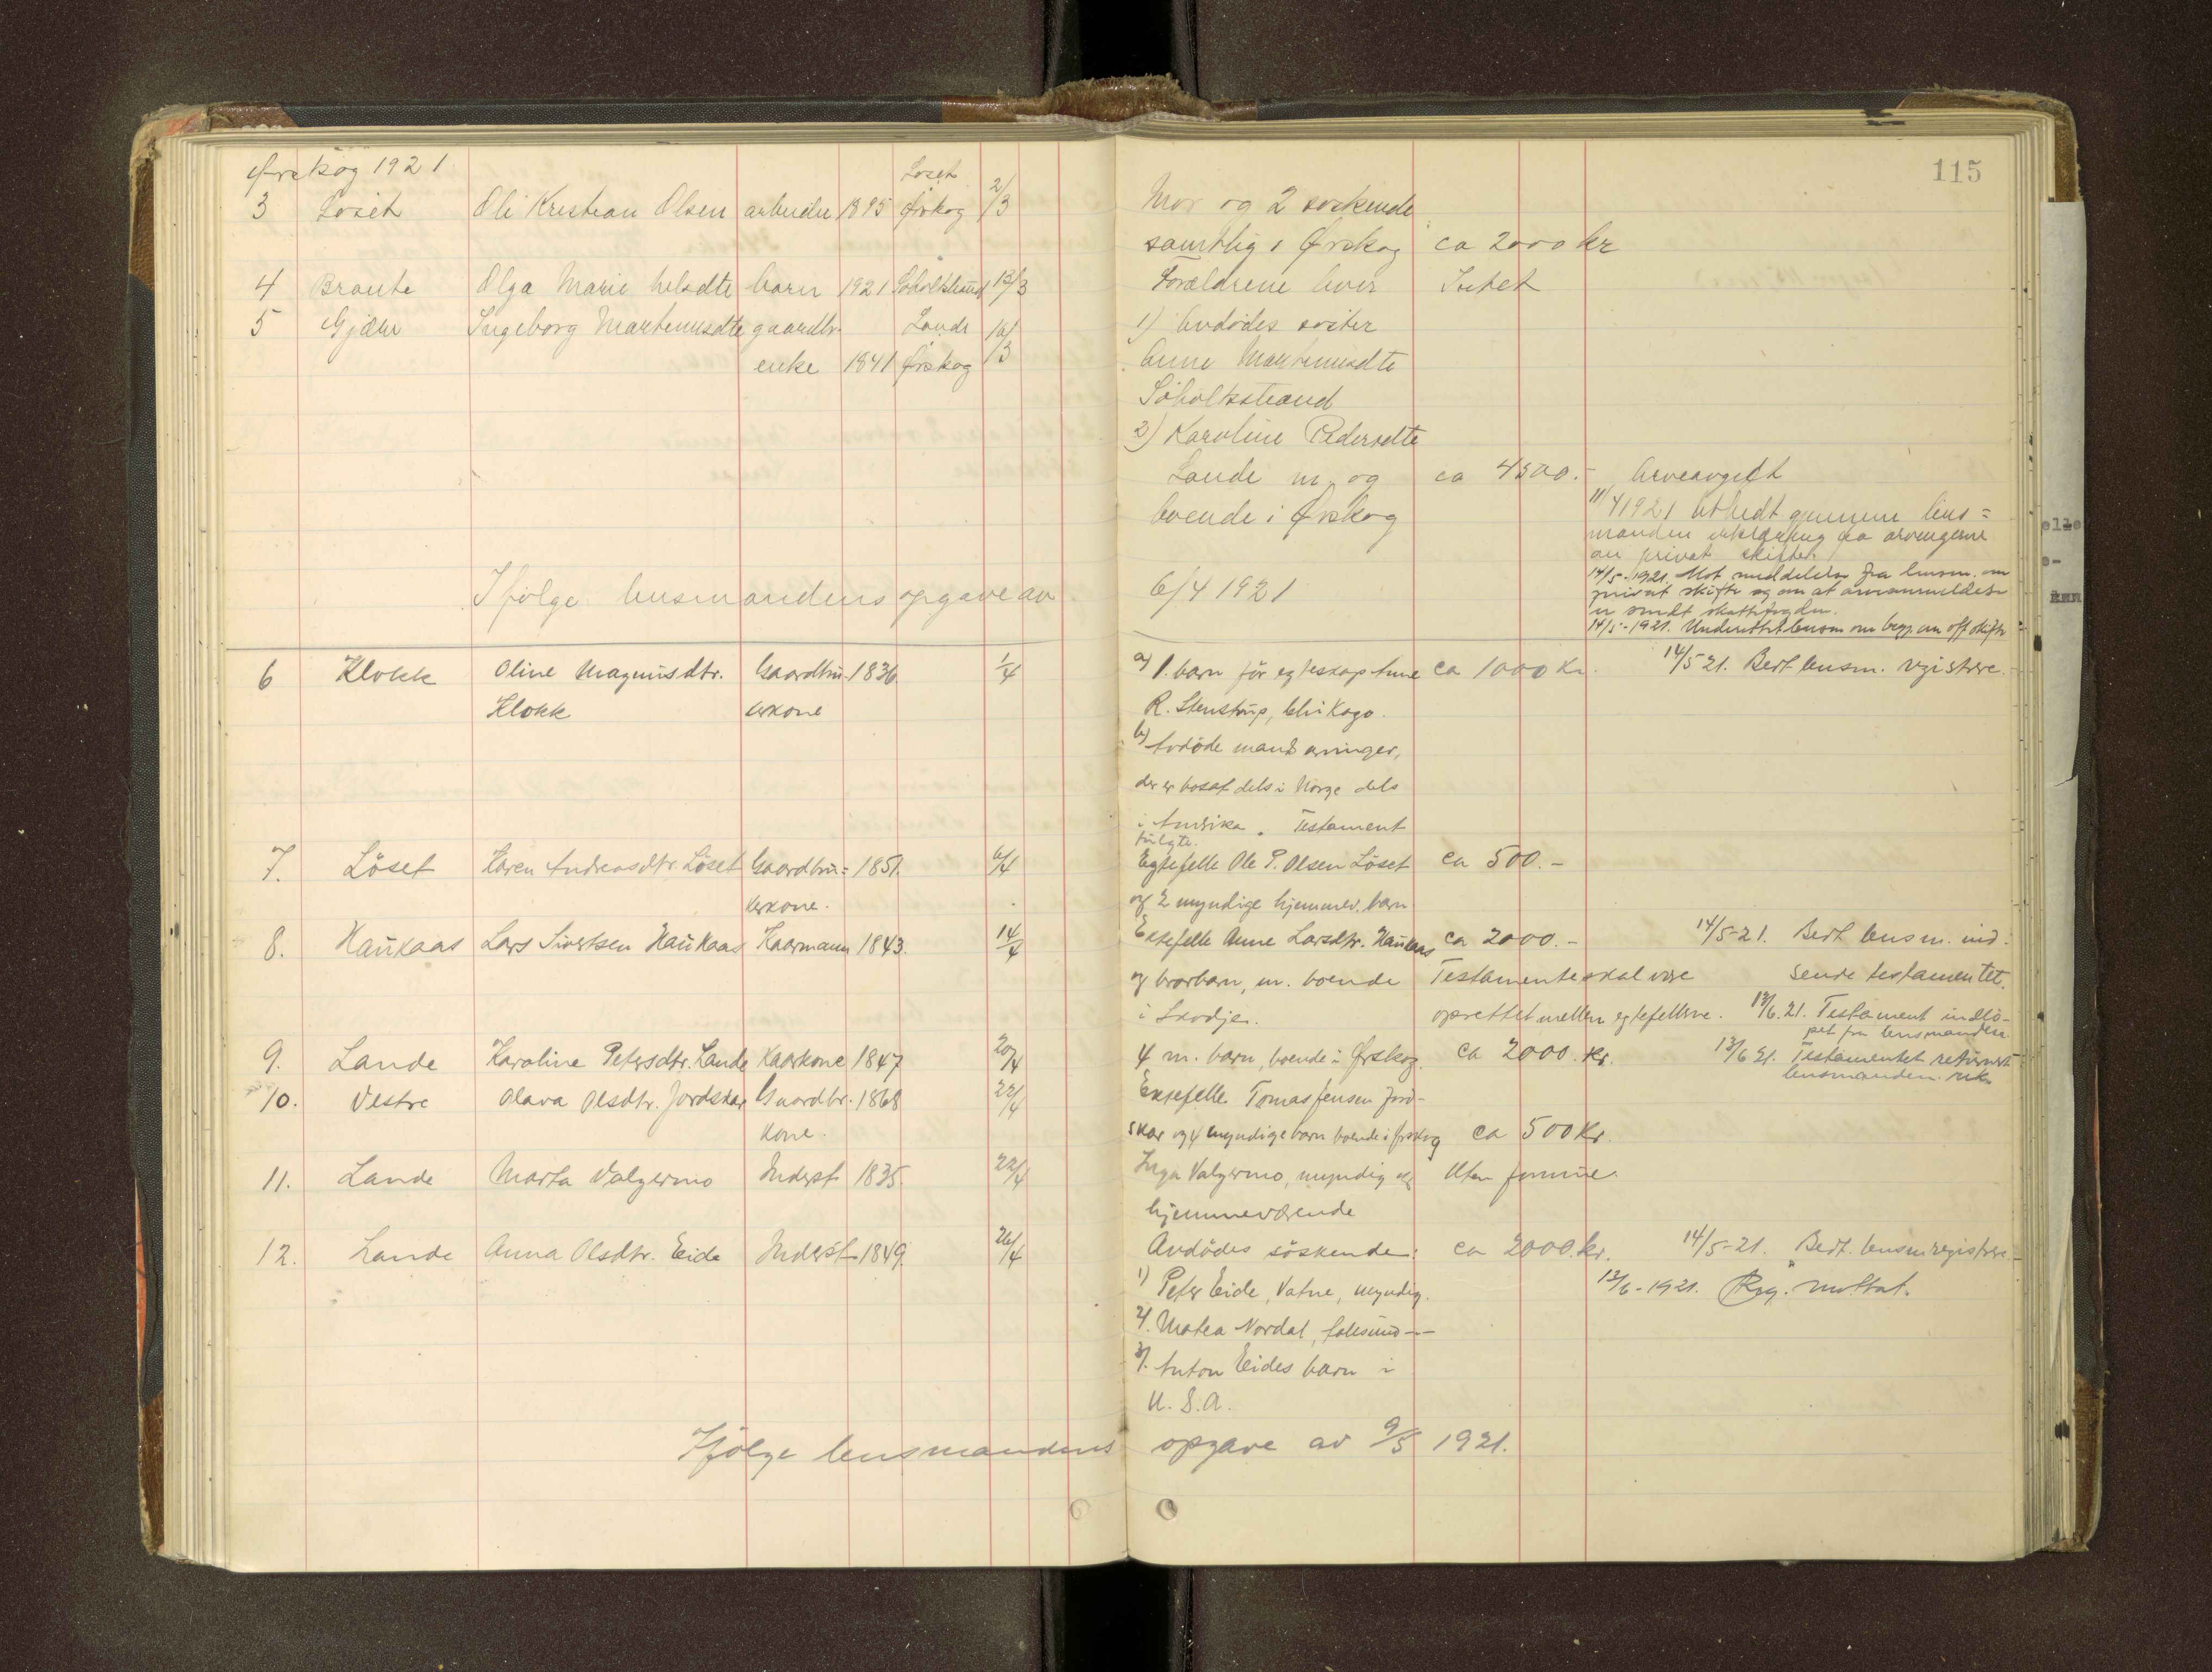 115
Ørskog 1921
Løset
3 Løset Ole Kristian Olsen arbeider 1895 Ørskog 2/3 Mor og 2 søskende
samtlig i Ørskog ca 2000 kr
4 Braute Olga Marie barn 1921 Søholtstrand 13/3 Forældrene lever Intet
5 Ingeborg Martinusdtr gaardbr. Lande 16/3 1) Avdødes søster
enke 1841 Ørskog Anne Martinusdtr
Søholtsstrand
2) Karoline Pedersdtr
Lande m. og ca 4500.- Arveavgift
boende i Ørskog 11/4 1921 Utbedt gjennem lens=
manden erklæring fra arvingerne
om privat skifte.
14/5-1921. Mot. meddelelse fra lensm. om
privat skifte og om at
er sendt skattefogden.
14/5-1921. Underrettet lensm om begj. om off skifte
Ifølge lensmandens opgave av 6/4 1921
6 Klokk Oline Magnusdtr. Gaardbru- 1836 1/4 a) 1. barn før egteskap ca 1000 Kr. 14/5 21. Bedt lensm. registrere.
Klokk kerkone R. Stenstrup, Chikago.
b) Avdøde mands arvinger,
der er bosat dels i Norge dels
i Amerika. Testament
følgte.
7. Löset Karen Andreasdtr. Löset Gaardbru= 1851. 6/4 Egtefelle Ole P. Olsen Löset ca 500.-
kerkone. og 2 myndige hjemmev. barn
8. Haukaas Lars Sivertsen Haukaas Kaarmann 1843. 14/4 Ektefelle Anne Larsdtr. Haukaas ca 2000.- 14/5-21. Bedt lensm. ind-
og brorbarn, m. boende Testamente skal være sende testamentet.
i Skodje. oprettet mellem egtefellerne. 13/6.21. Testament indlö-
pet fra lensmanden
9. Lande Karoline Petersdtr. Lande Kaarkone 1847 20/4 4 m. barn, boende i Ørskog. ca 2000. Kr. 13/6 21. Testamentet returnert
lensmanden rek.
10. Vestre Olava Olsdtr. Jordskar Gaardbr. 1868 22/4 Ektefelle Tomas Jensen Jord-
kone. skar og 4 myndige barn boende i Ørskog ca 500 Kr.
11. Lande Marta Valgermo Inderst 1835. 22/4 Inga Valgermo, myndig og Uten formue.
hjemmeværende
12. Lande Anna Olsdtr. Eide Inderst 1849. 26/4 Avdödes söskende: ca 2000.kr. 14/5-21. Bedt. lensm registrere.
1) Peter Eide, Vatne, myndig. 13/6-1921. Reg. mottat.
2). Matea Nordal, —"—
3). Anton Eides barn i
U.S.A.
Ifölge lensmandens opgave av 9/5 1921.